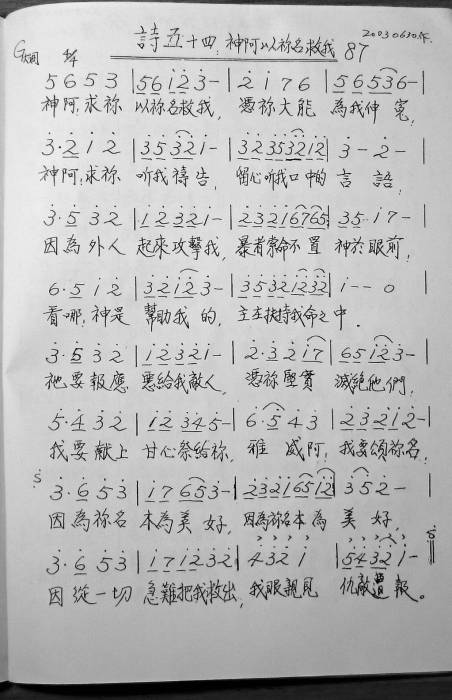 詩五十四：神阿以祢名救我 87 20030630作
G調 4/4
5 6 5 3 | 5 6 1̇ 2̇ 3̇ - | 2̇ 1̇ 7 6 | 5 6 5 3 6 - |
神阿，求祢 以祢名救我， 憑祢大能 為我伸冤，
3̇·2̇ 1̇ 2̇ | 3̇ 5̇ 3̇ 2̇ 1̇ - | 3̇ 2̇ 3̇ 5̇ 3̇ 2̇ 1̇ 2̇ | 3̇ - 2̇ - |
神阿，求祢 听我禱告， 留心听我口中的 言語，
3̇·5̇ 3̇ 2̇ | 1̇ 2̇ 3̇ 2̇ 1̇ - | 2̇ 3̇ 2̇ 1̇ 6 7 6 5 | 3 5 1̇ 7 - |
因為外人 起來攻擊我， 暴者索命不置 神於眼前，
6·5 1̇ 2̇ | 3̇ 2̇ 1̇ 2̇ 3̇ - | 3̇ 5̇ 3̇ 2̇ 1̇ 2̇ 3̇ 2̇ | 1̇ - - 0
看哪，神是 幫助我的， 主主扶持我命之中．
3̇·5̇ 3̇ 2̇ | 1̇ 2̇ 3̇ 2̇ 1̇ - | 2̇·3̇ 2̇ 1̇ 7 | 6 5 1̇ 2̇ 3̇ - |
祂要報應 惡給我敵人， 憑祢堅實 滅絕他們，
5̇·4̇ 3̇ 2̇ | 1̇ 2̇ 3̇ 4̇ 5̇ - | 6̇·5̇ 4̇ 3̇ | 2̇ 3̇ 2̇ 1̇ 2̇ - |
我要獻上 甘心祭給祢， 雅威阿，我要頌祢名，
S 3̇·6̇ 5̇ 3̇ | 1̇ 7 6 5 3 - | 2̇ 3̇ 2̇ 1̇ 6 5 1̇ 2̇ | 3̇ 5̇ 2̇ - |
因為祢名 本為美好， 因為祢名本為 美好，
3̇·6̇ 5̇ 3̇ | 1̇ 7 1̇ 2̇ 3̇ 2̇ | 4̇ 3̇ 2̇ 1̇ | 5̇ 4̇ 3̇ 2̇ 1̇ - S
因從一切 急難把我救出， 我眼親見 仇敵遭報。